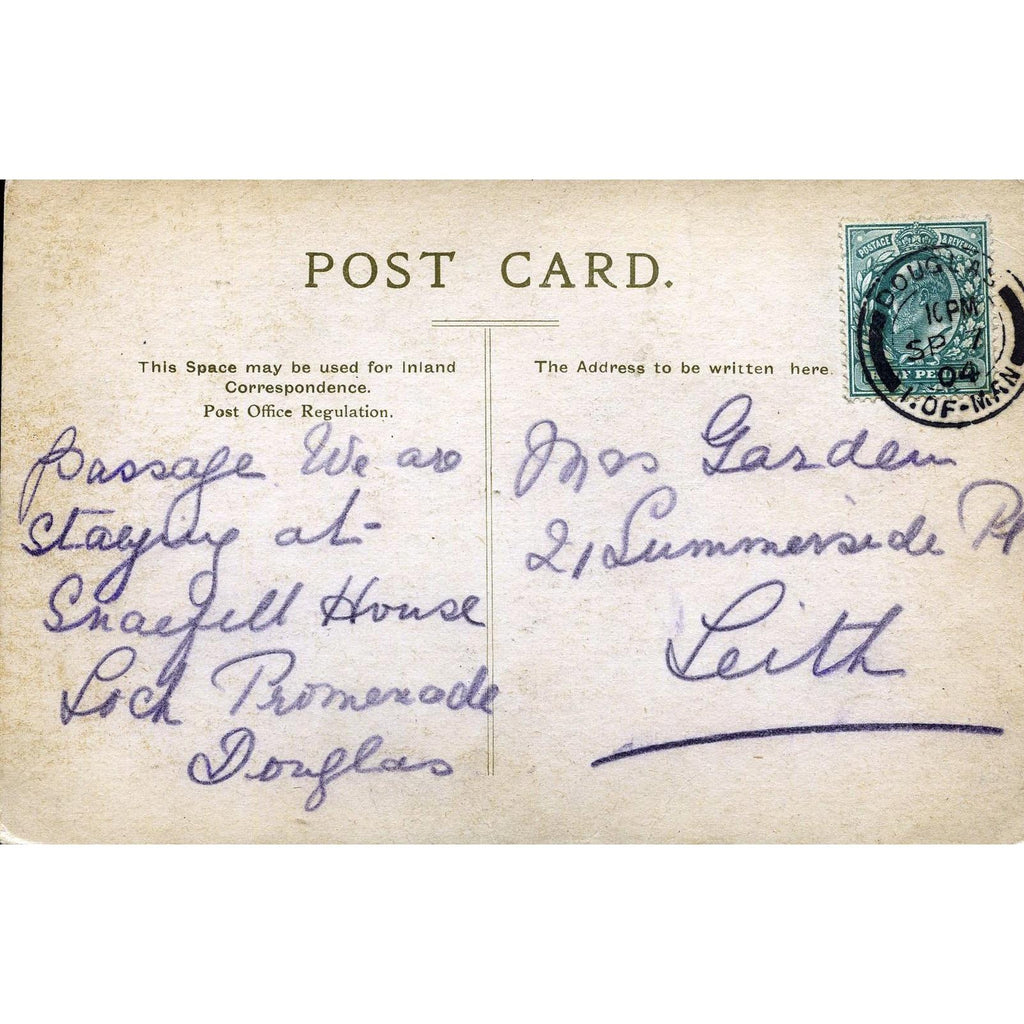 POST CARD.
This Space may be used for Inland
Correspondence.
Post Office Regulation.
passage We are
staying at
Snaefell House
Loch Promenade
Douglas
The Address to be written here.
Mrs Garden
21 Summerside Pl
Leith
POSTAGE & REVENUE
DOUGLAS
10 PM
SP 7
04
I. OF-MAN